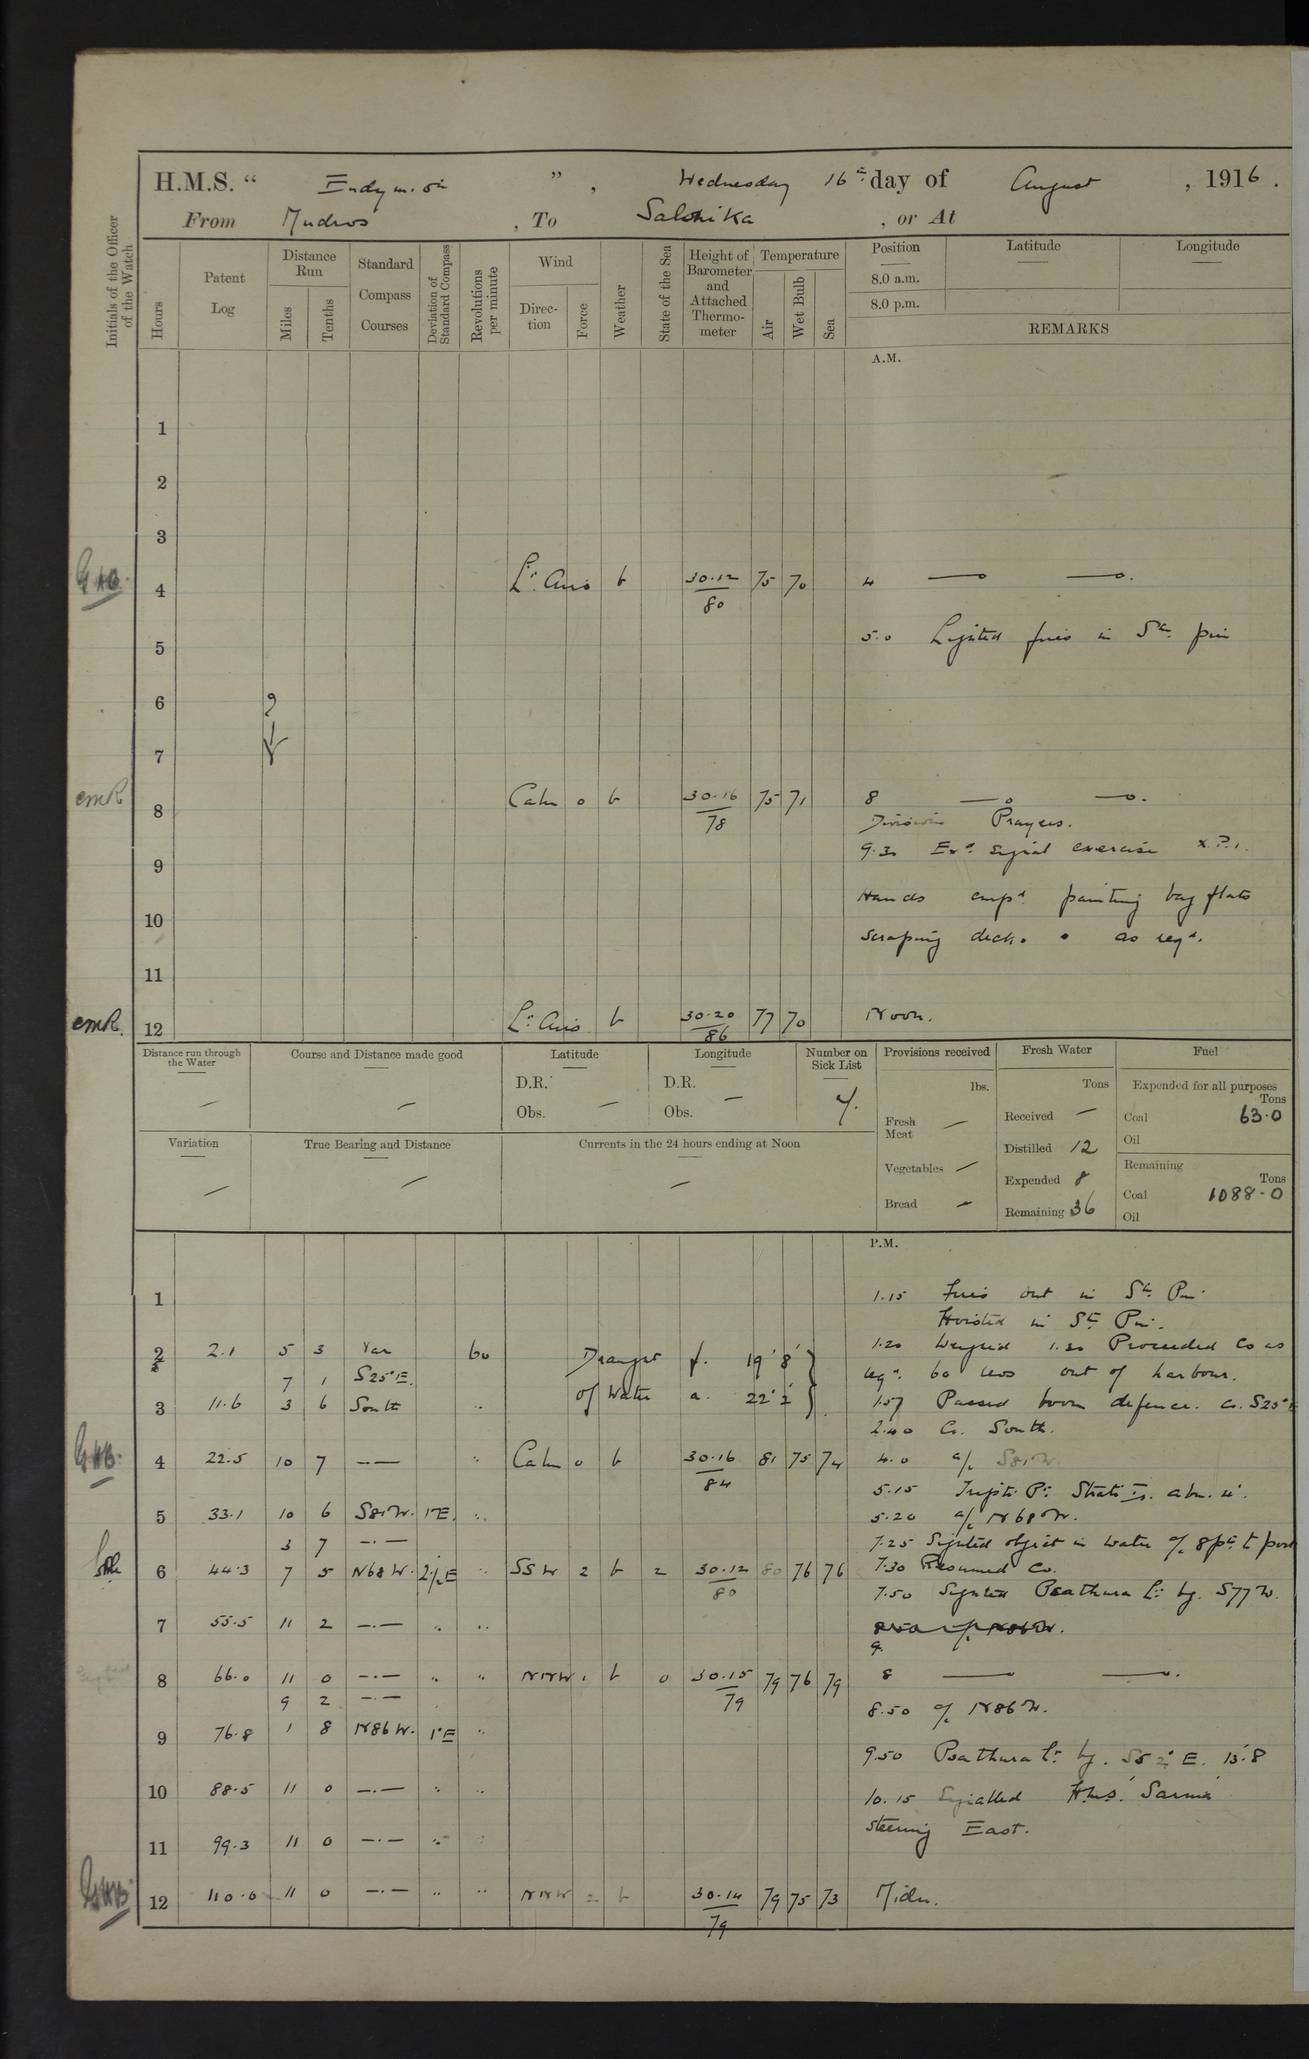 H.M.S. “ Endymion ” , Wednesday 16th day of August , 1916 .
From Mudros , To Salonika , or At
Initials of the Officer of the Watch
Hours
Patent Log
Distance Run
Miles
Tenths
Standard Compass Courses
Deviation of Standard Compass
Revolutions per minute
Wind
Direction
Force
Weather
State of the Sea
Height of Barometer and Attached Thermometer
Temperature
Air
Wet Bulb
Sea
Position
Latitude
Longitude
8.0 a.m.
8.0 p.m.
REMARKS
A.M.
1
2
3
4 Lt. Airs b 30.12/80 75 70 4
5 5.0 Lighted fires in
6
7
8 Calm 0 b 30.16/78 75 71 8
Divisions Prayers.
9 9.30 Exd. signal exercise X.P.1.
10 Hands empd. painting bag flats
scraping deck. as reqd.
11
12 Lt. Airs b 30.20/86 77 70 Noon.
Distance run through the Water
Course and Distance made good
Latitude
D.R.
Obs.
Longitude
D.R.
Obs.
Number on Sick List
Provisions received
lbs.
Fresh Meat
Vegetables
Bread
Fresh Water
Tons
Received
Distilled 12
Expended 8
Remaining 36
Fuel
Expended for all purposes
Tons
Coal 63.0
Oil
Remaining
Tons
Coal 1088.0
Oil
Variation
True Bearing and Distance
Currents in the 24 hours ending at Noon
P.M.
1 1.15 Fires out in
Hoisted in
2 2.1 5 3 Var 60 Draught f. 19' 8" 1.20 Weighed 1.30 Proceeded Co as
7 1 S25°E. reqd. 60 revs out of harbour.
3 11.6 3 6 South " of Water a. 22' 2" 1.57 Passed boom defence. Co. S25°E
2.40 Co. South.
4 22.5 10 7 —·— " Calm 0 b 30.16/84 81 75 74 4.0 a/c S81W
5.15 Strati Is. abm. 4'.
5 33.1 10 6 S81W. 1°E. " 5.20 a/c N68W.
3 7 —·— 7.25 Sighted object in water a/c 8 pts to port
6 44.3 7 5 N68W. 2½E " SSW 2 b 2 30.12/80 80 76 76 7.30 Resumed Co.
7.50 Sighted Psathura Lt. bg. S77W.
7 55.5 11 2 —·— " "
8 66.0 11 0 —·— " " NNW 1 b 0 30.15/79 79 76 79 8
9 2 —·— 8.50 a/c N86W.
9 76.8 1 8 N86W. 1°E "
9.50 Psathura Lt. bg. S52°E. 13'.8
10 88.5 11 0 —·— " " 10.15 Signalled H.M.S.
steering East.
11 99.3 11 0 —·— " "
12 110.0 11 0 —·— " " NNW 2 b 30.14/79 79 75 73 Midn.